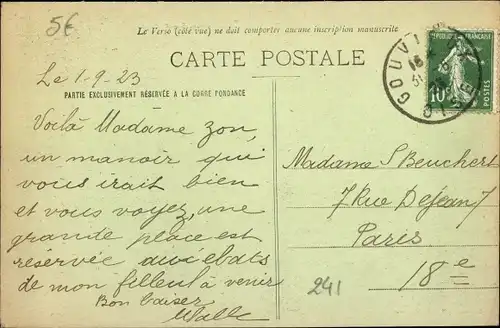 5€
Le Verso (côté vue) ne doit comporter aucune inscription manuscrite
CARTE POSTALE
Le 1-9-23
PARTIE EXCLUSIVEMENT RÉSERVÉE A LA CORRESPONDANCE
Voilà Madame Zon,
un manoir qui
vous irait bien
et vous voyez, une
grande place est
réservée aux ébats
de mon filleul à venir
Bon baiser
RÉPUBLIQUE FRANÇAISE
10
POSTES
GOUVI
OISE
Madame Beuchert
7 Rue Dejean 7
Paris
18e
241